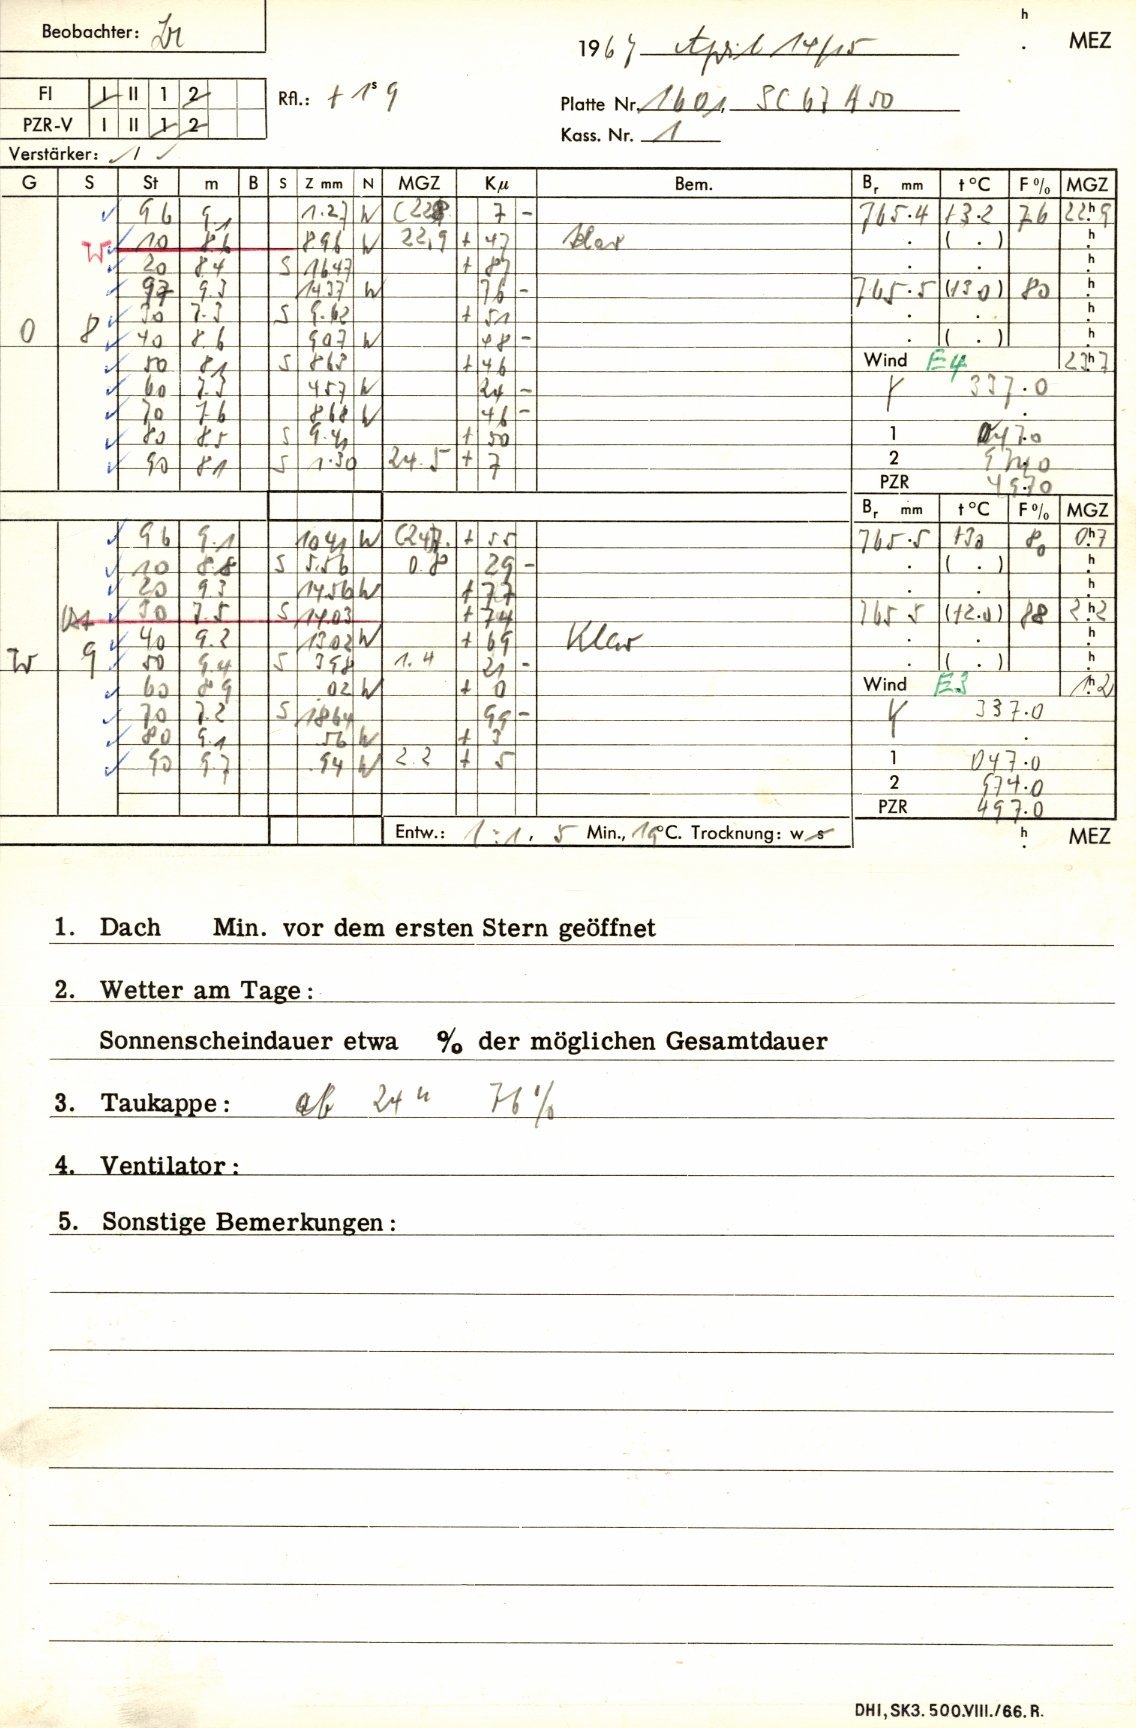 Beobachter:
h
1967 April 14/15 . MEZ
FI I II 1 2 Rfl.: + 1s 9 Platte Nr. 1601, SC 67 A 50
PZR-V I II 1 2 Kass. Nr. 1
Verstärker: 1
G S St m B S Z mm N MGZ Kμ Bem. Br mm t °C F % MGZ
96 9.1 1.27 W 7 - 765.4 +3.2 76 22h9
W 10 8.6 896 W 22,9 + 47 klar . ( . ) h
20 8.4 S 1647 + 87 . . h
97 9.3 1437 W 76 - 765.5 (+3 0) 80 h
30 7.3 S 9.62 + 51 . . h
0 8 40 8.6 907 W 48 - . ( . ) h
50 8.1 S 863 + 46 Wind E4 23h7
60 7.3 457 W 24 - 337.0
70 7.6 868 W 46 - .
80 8.5 S 9.41 + 50 1 047.0
90 8.1 S 1.30 24.5 + 7 2 974.0
PZR 497.0
Br mm t °C F % MGZ
96 9.1 1041 W + 55 765.5 +30 80 0h7
10 8.8 S 5.56 0.8 29 - . ( . ) h
20 9.3 1456 W + 77 . . h
30 7.5 S 1403 + 74 765 5 (+2.0) 88 2h2
40 9.2 1302 W + 69 Klar . . h
W 9 50 9.4 S 398 1.4 21 - . ( . ) h
60 8 9 02 W + 0 Wind E3 1h2
70 7.2 S 1864 99 - 337.0
80 9.1 56 W + 3 .
90 9.7 .94 W 2.2 + 5 1 047.0
2 974.0
PZR 497.0
Entw.: 1:1, 5 Min., 19°C. Trocknung: w s h . MEZ
1. Dach Min. vor dem ersten Stern geöffnet
2. Wetter am Tage:
Sonnenscheindauer etwa % der möglichen Gesamtdauer
3. Taukappe: ab 24 h 76 %
4. Ventilator:
5. Sonstige Bemerkungen:
DHI, SK3. 500.VIII./66. R.